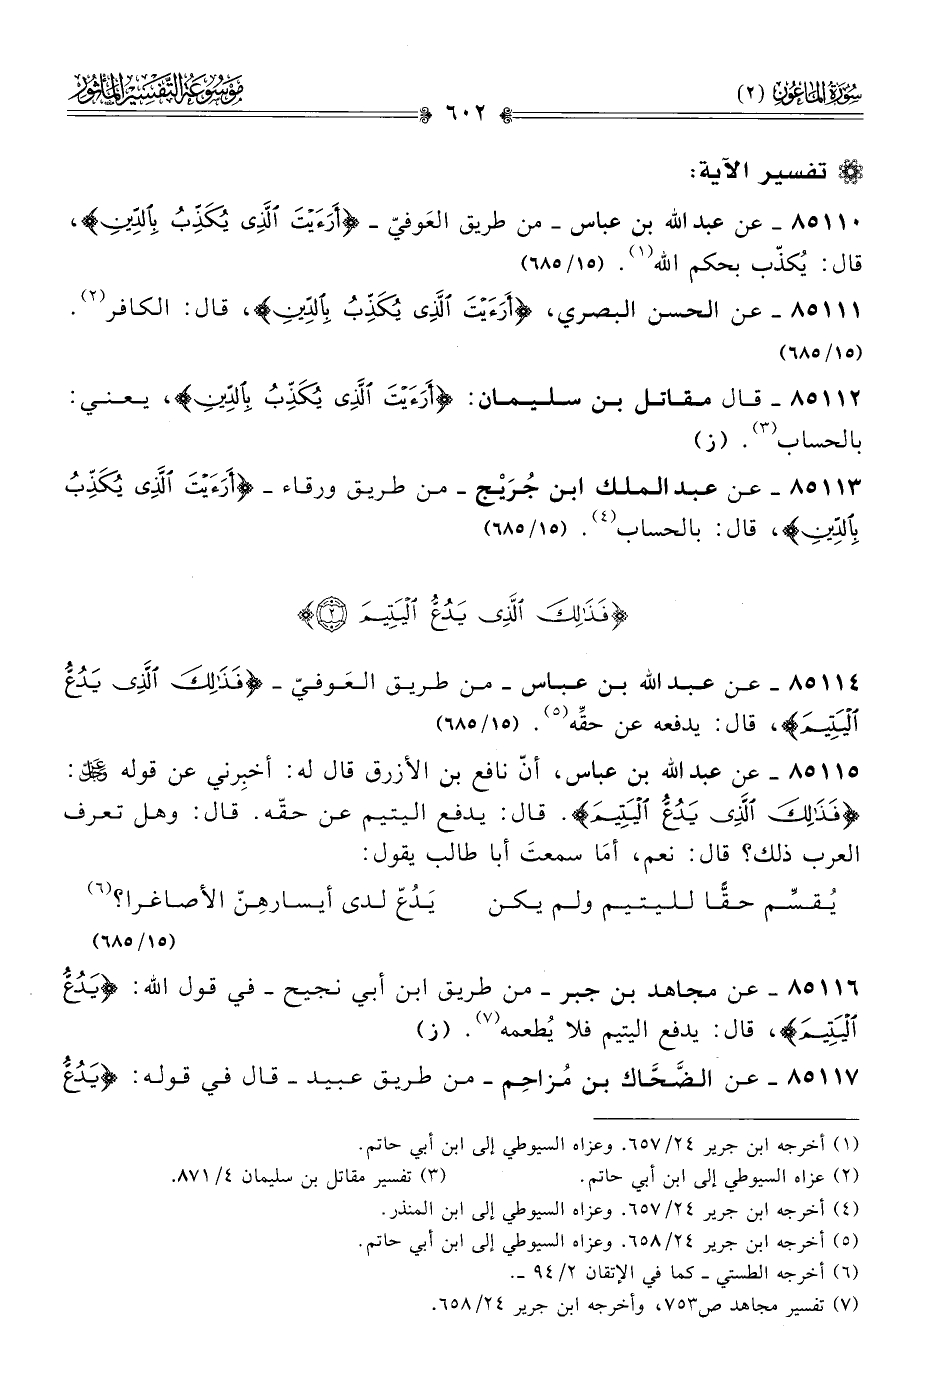 سورة الماعون (٢)
٦٠٢
موسوعة التفسير المأثور
تفسير الآية:
٨٥١١٠ ـ عن عبد الله بن عباس ـ من طريق العَوفيّ ـ ﴿أَرَءَيْتَ ٱلَّذِى يُكَذِّبُ بِٱلدِّينِ﴾،
قال: يُكذّب بحكم الله(١). (١٥/ ٦٨٥)
٨٥١١١ ـ عن الحسن البصري، ﴿أَرَءَيْتَ ٱلَّذِى يُكَذِّبُ بِٱلدِّينِ﴾، قال: الكافر(٢).
(١٥/ ٦٨٥)
٨٥١١٢ ـ قال مقاتل بن سليمان: ﴿أَرَءَيْتَ ٱلَّذِى يُكَذِّبُ بِٱلدِّينِ﴾، يعني:
بالحساب(٣). (ز)
٨٥١١٣ ـ عن عبد الملك ابن جُرَيْج ـ من طريق ورقاء ـ ﴿أَرَءَيْتَ ٱلَّذِى يُكَذِّبُ
بِٱلدِّينِ﴾، قال: بالحساب(٤). (١٥/ ٦٨٥)
﴿فَذَٰلِكَ ٱلَّذِى يَدُعُّ ٱلْيَتِيمَ ٢﴾
٨٥١١٤ ـ عن عبد الله بن عباس ـ من طريق العَوفيّ ـ ﴿فَذَٰلِكَ ٱلَّذِى يَدُعُّ
ٱلْيَتِيمَ﴾، قال: يدفعه عن حقِّه(٥). (١٥/ ٦٨٥)
٨٥١١٥ ـ عن عبد الله بن عباس، أنّ نافع بن الأزرق قال له: أخبِرني عن قوله ﷿:
﴿فَذَٰلِكَ ٱلَّذِى يَدُعُّ ٱلْيَتِيمَ﴾. قال: يدفع اليتيم عن حقه. قال: وهل تعرف
العرب ذلك؟ قال: نعم، أمَا سمعتَ أبا طالب يقول:
يُقسِّم حقًّا لليتيم ولم يكن يَدُعّ لدى أيسارهِنّ الأصاغرا؟(٦)
(١٥/ ٦٨٥)
٨٥١١٦ ـ عن مجاهد بن جبر ـ من طريق ابن أبي نجيح ـ في قول الله: ﴿يَدُعُّ
ٱلْيَتِيمَ﴾، قال: يدفع اليتيم فلا يُطعمه(٧). (ز)
٨٥١١٧ ـ عن الضَّحَّاك بن مُزاحِم ـ من طريق عبيد ـ قال في قوله: ﴿يَدُعُّ
(١) أخرجه ابن جرير ٢٤/ ٦٥٧. وعزاه السيوطي إلى ابن أبي حاتم.
(٢) عزاه السيوطي إلى ابن أبي حاتم. (٣) تفسير مقاتل بن سليمان ٤/ ٨٧١.
(٤) أخرجه ابن جرير ٢٤/ ٦٥٧. وعزاه السيوطي إلى ابن المنذر.
(٥) أخرجه ابن جرير ٢٤/ ٦٥٨. وعزاه السيوطي إلى ابن أبي حاتم.
(٦) أخرجه الطستي ـ كما في الإتقان ٢/ ٩٤ ـ.
(٧) تفسير مجاهد ص٧٥٣، وأخرجه ابن جرير ٢٤/ ٦٥٨.